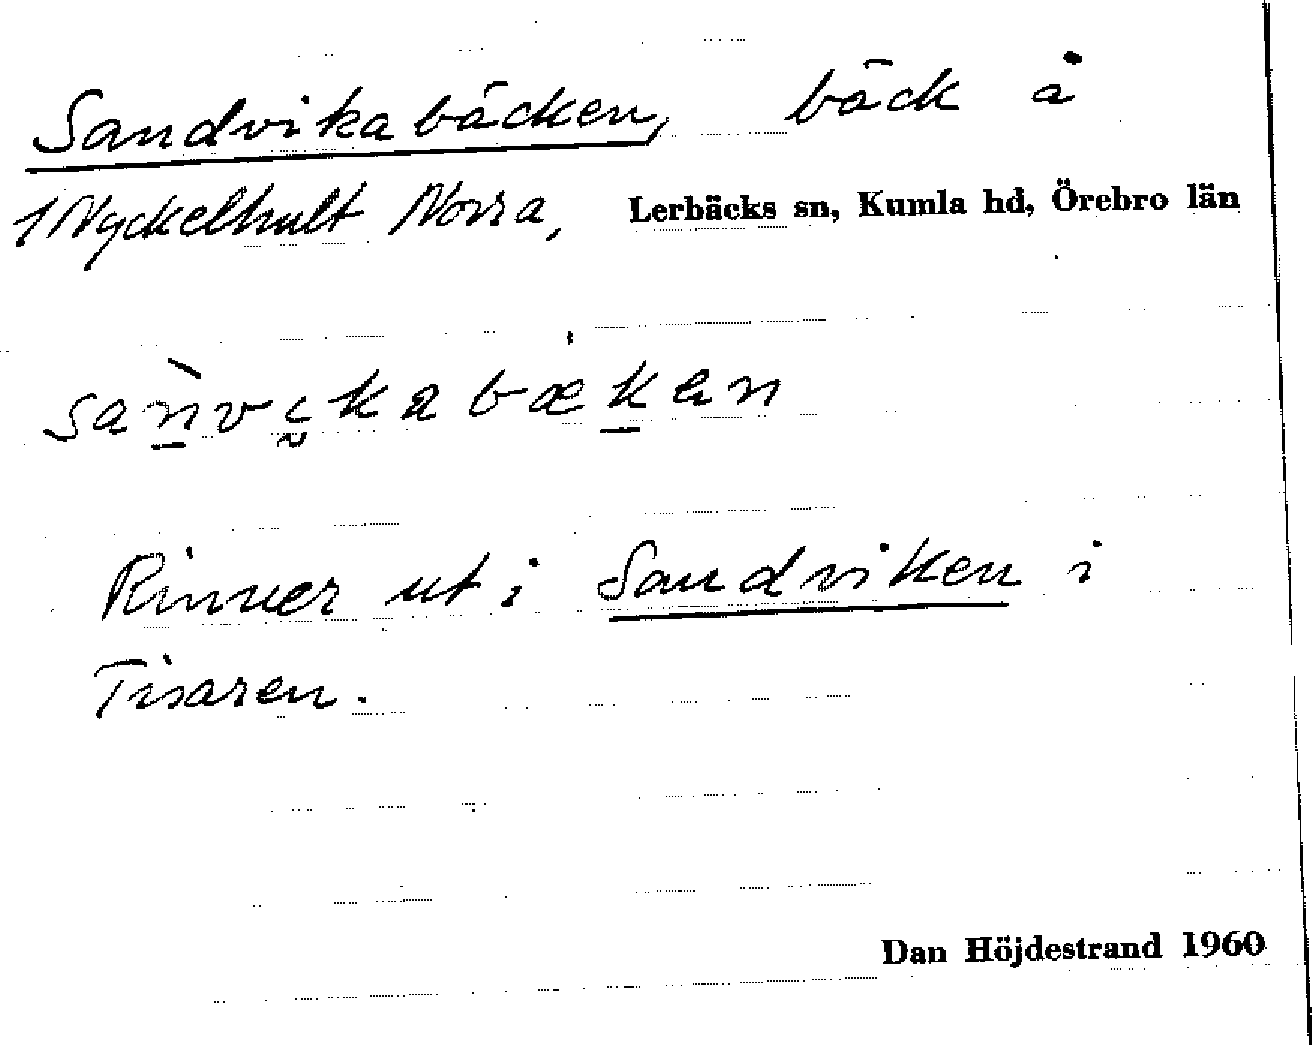 Sandvikabäcken, bäck å
1 Nyckelhult Norra, Lerbäcks sn, Kumla hd, Örebro län
sànvikabækən
Rinner ut i Sandviken i
Tisaren.
Dan Höjdestrand 1960